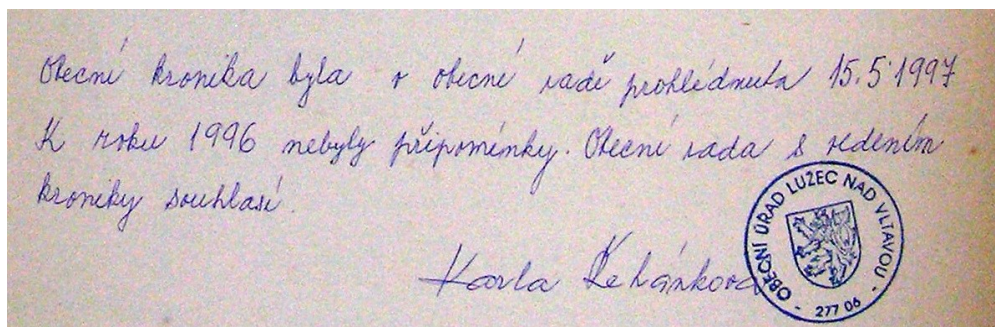 Obecní kronika byla v obecné radě prohlédnuta 15.5.1997
K roku 1996 nebyly připomínky. Obecní rada s vedením
kroniky souhlasí.
Karla Řehánková
OBECNÍ ÚŘAD LUŽEC NAD VLTAVOU
- 277 06 -